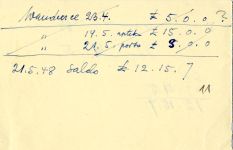 23.4. £ 5.0.0 ?
" 19.5. £ 15.0.0
" 21.5. porto £ 5.0.0
21.5.48 Saldo £ 12.15.7
11